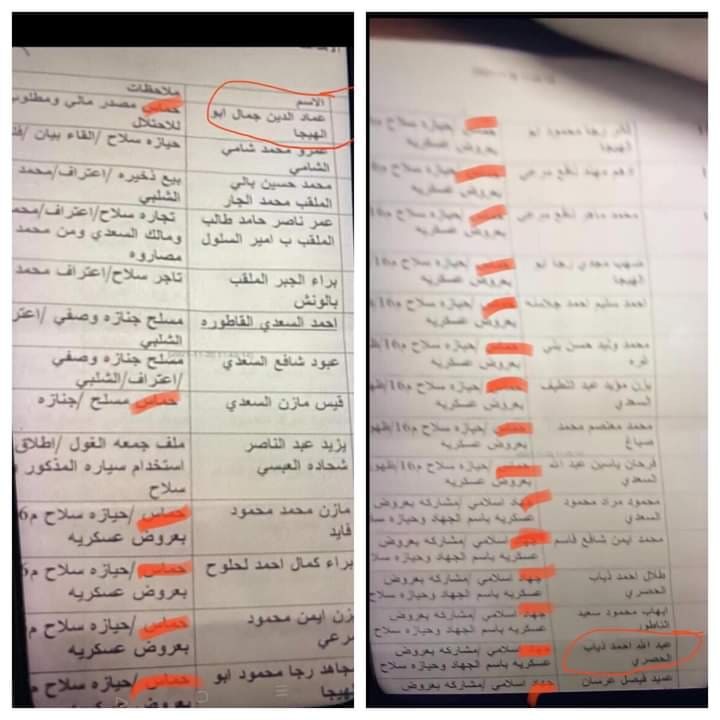 الاسم
ملاحظات
عماد الدين جمال ابو
الهيجا
حماس مصدر مالي ومطلوب
للاحتلال
عمرو محمد شامي
الشامي
حيازه سلاح /القاء بيان
محمد حسين بالي
الملقب محمد الجار
بيع ذخيره /اعتراف/محمد
الشلبي
عمر ناصر حامد طالب
الملقب ب امير السلول
تجاره سلاح/اعتراف/محمد
ومالك السعدي ومن محمد
مصاروه
براء الجبر الملقب
بالونش
تاجر سلاح/اعتراف محمد
احمد السعدي القاطوره
مسلح جنازه وصفي /
الشلبي
عبود شافع السعدي
مسلح جنازه وصفي
/اعتراف/الشلبي
قيس مازن السعدي
حماس مسلح /جنازه
يزيد عبد الناصر
شحاده العبسي
ملف جمعه الغول /اطلاق
استخدام سياره المذكور
سلاح
مازن محمد محمود
فايد
حماس /حيازه سلاح
بعروض عسكريه
براء كمال احمد لحلوح
حماس /حيازه سلاح
بعروض عسكريه
ايمن محمود
حماس /حيازه سلاح
بعروض عسكريه
مجاهد رجا محمود ابو
الهيجا
حماس /حيازه سلاح
رجا محمود ابو
الهيجا
حماس /حيازه سلاح
بعروض عسكريه
ادهم مهند
حماس /حيازه سلاح
بعروض عسكريه
محمد ماهر
حماس /حيازه سلاح
بعروض عسكريه
صهيب مجدي رجا ابو
الهيجا
حماس /حيازه سلاح م16
بعروض عسكريه
احمد سليم احمد جلامنه
حماس /حيازه سلاح م16
بعروض عسكريه
محمد وليد حسن
حماس /حيازه سلاح م16
بعروض عسكريه
يزن مؤيد عبد اللطيف
السعدي
حماس /حيازه سلاح م16
بعروض عسكريه
محمد معتصم محمد
صباغ
حماس /حيازه سلاح م16
بعروض عسكريه
فرحان ياسين عبد الله
السعدي
حماس /حيازه سلاح م16
بعروض عسكريه
محمود مراد محمود
السعدي
جهاد اسلامي /مشاركه بعروض
عسكريه باسم الجهاد وحيازه
محمد ايمن شافع قاسم
جهاد اسلامي /مشاركه بعروض
عسكريه باسم الجهاد وحيازه سلاح
طلال احمد ذياب
الحصري
جهاد اسلامي /مشاركه بعروض
عسكريه باسم الجهاد وحيازه سلاح
ايهاب محمود سعيد
الناطور
جهاد اسلامي /مشاركه بعروض
عسكريه باسم الجهاد وحيازه سلاح
عبد الله احمد ذياب
الحصري
جهاد اسلامي /مشاركه بعروض
عسكريه باسم الجهاد وحيازه سلاح
عميد فيصل عرسان
جهاد اسلامي /مشاركه بعروض